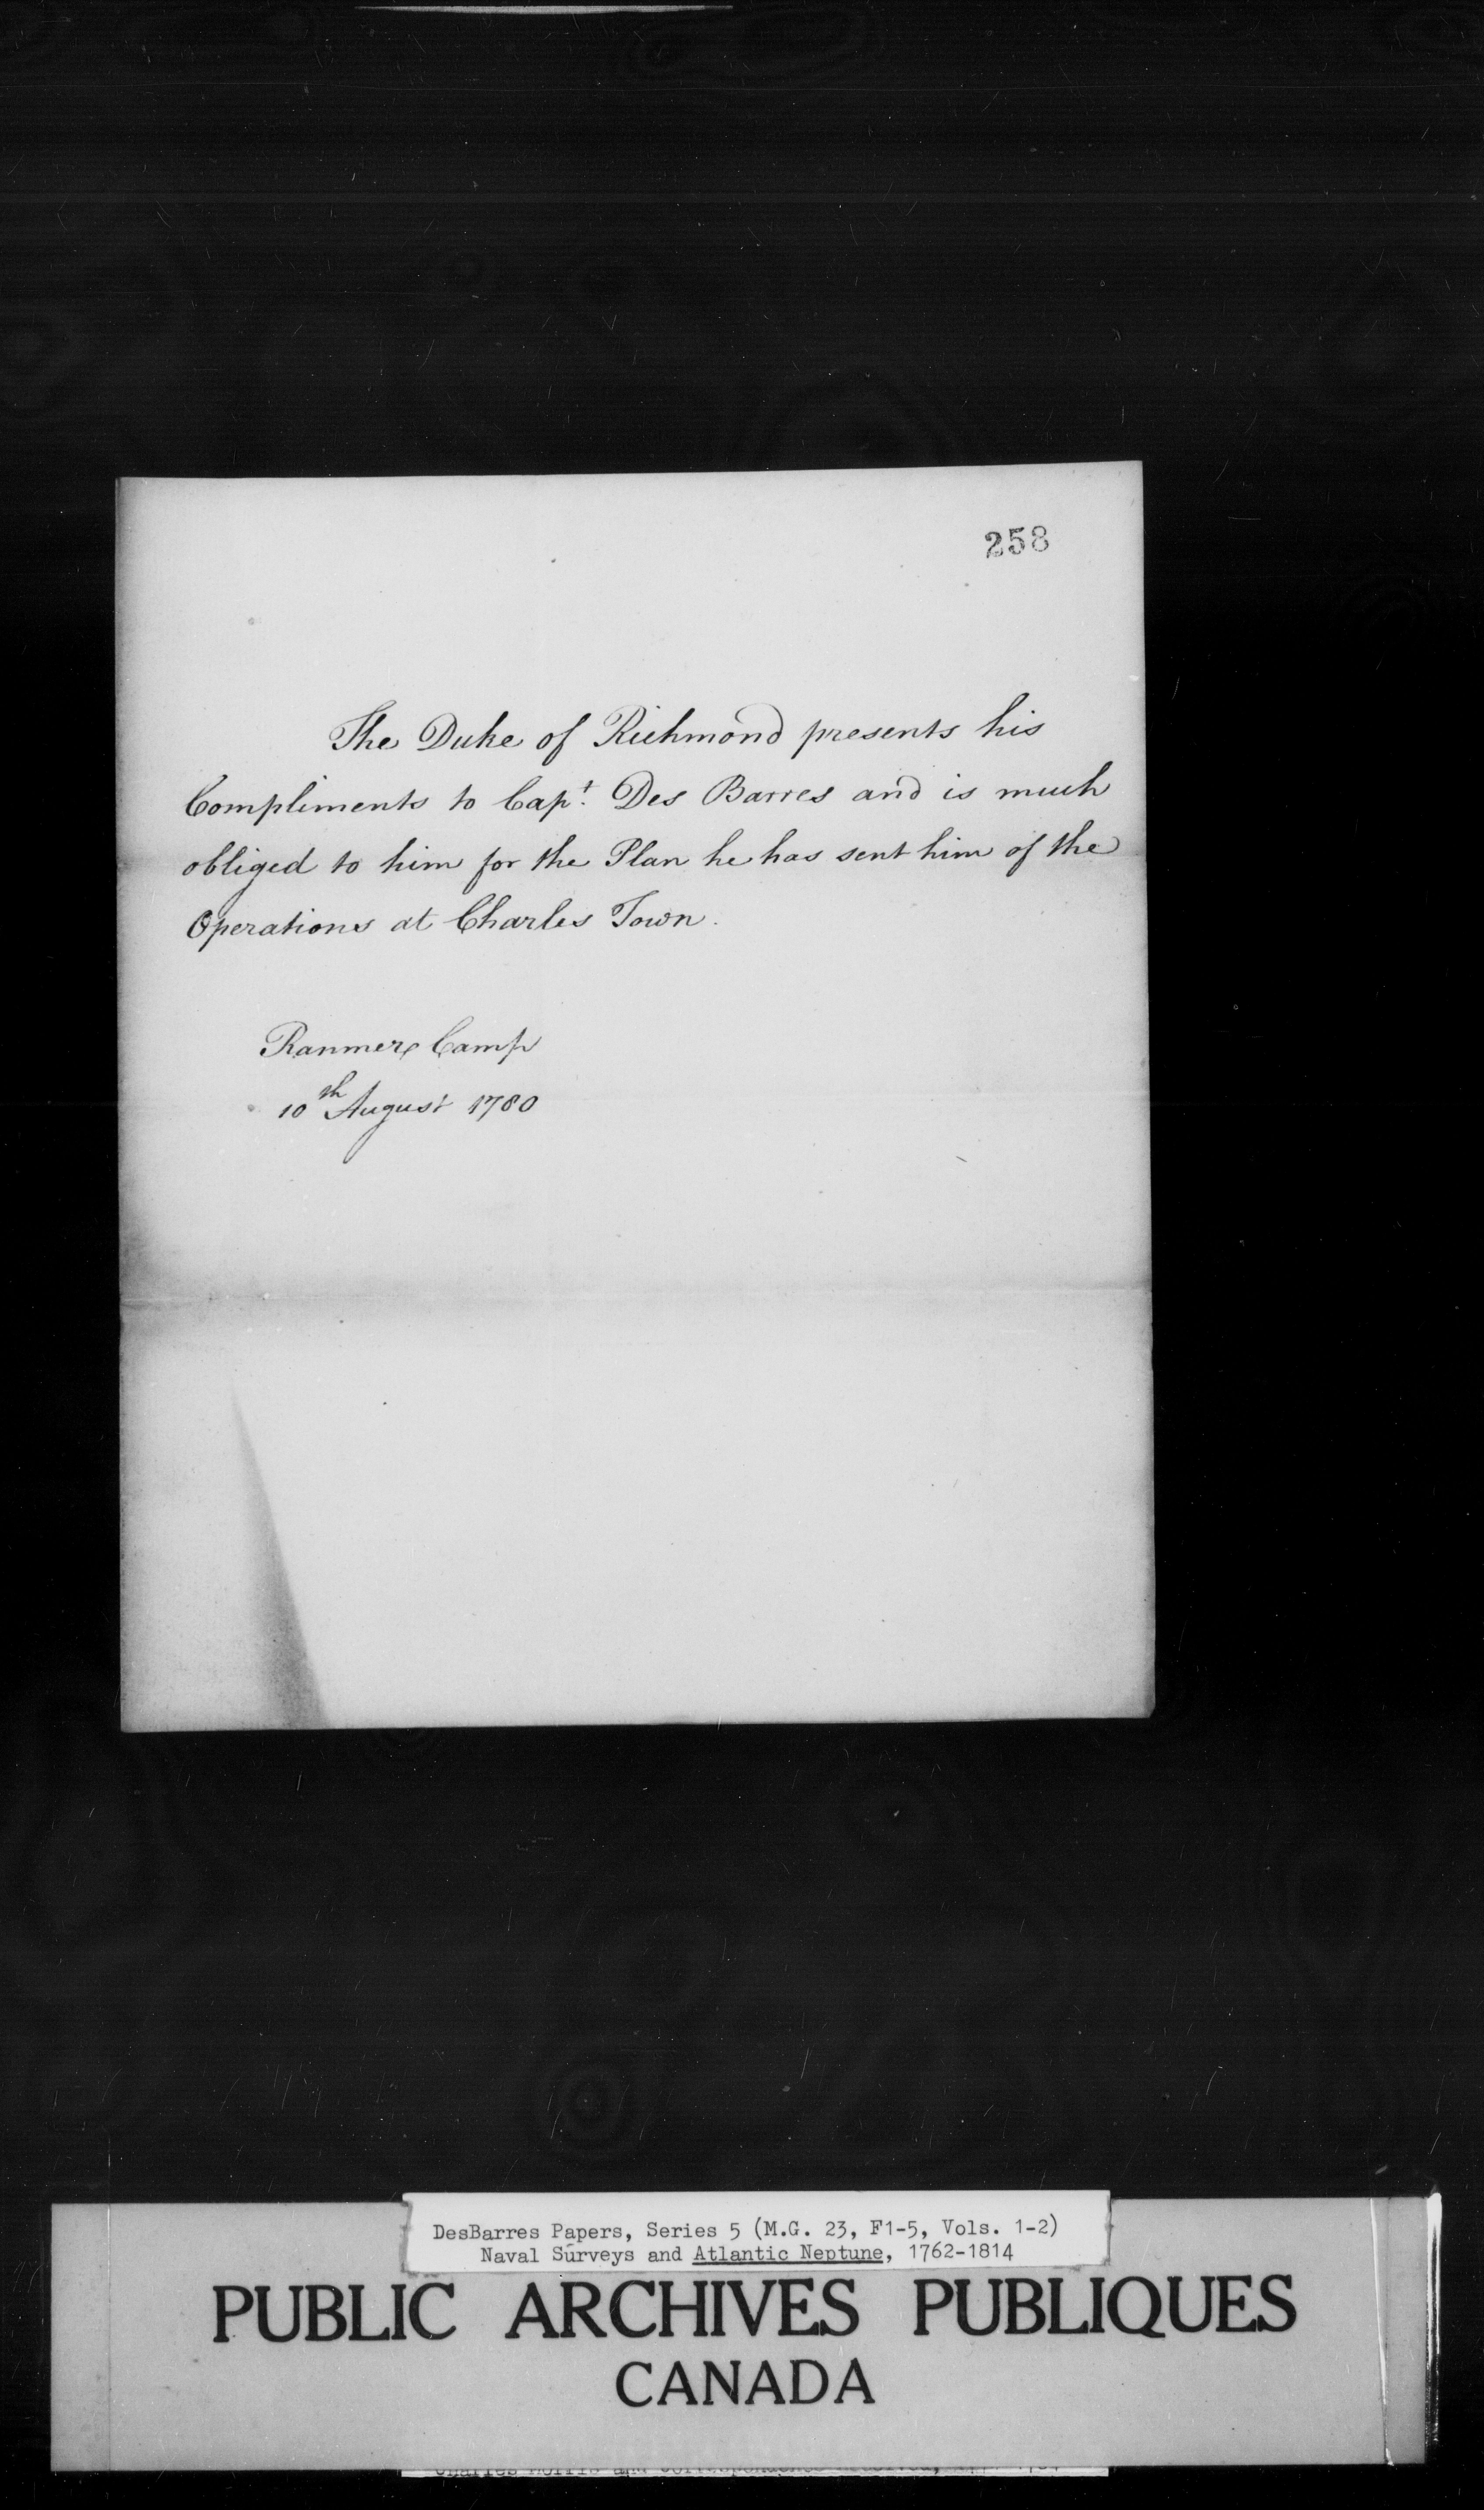 258
The Duke of Richmond presents his
Compliments to Capt. Des Barres and is much
obliged to him for the Plan he has sent him of the
Operations at Charles Town.
Ranmere Camp
10th August 1780
DesBarres Papers, Series 5 (M.G. 23, F1-5, Vols. 1-2)
Naval Surveys and Atlantic Neptune, 1762-1814
PUBLIC ARCHIVES PUBLIQUES
CANADA